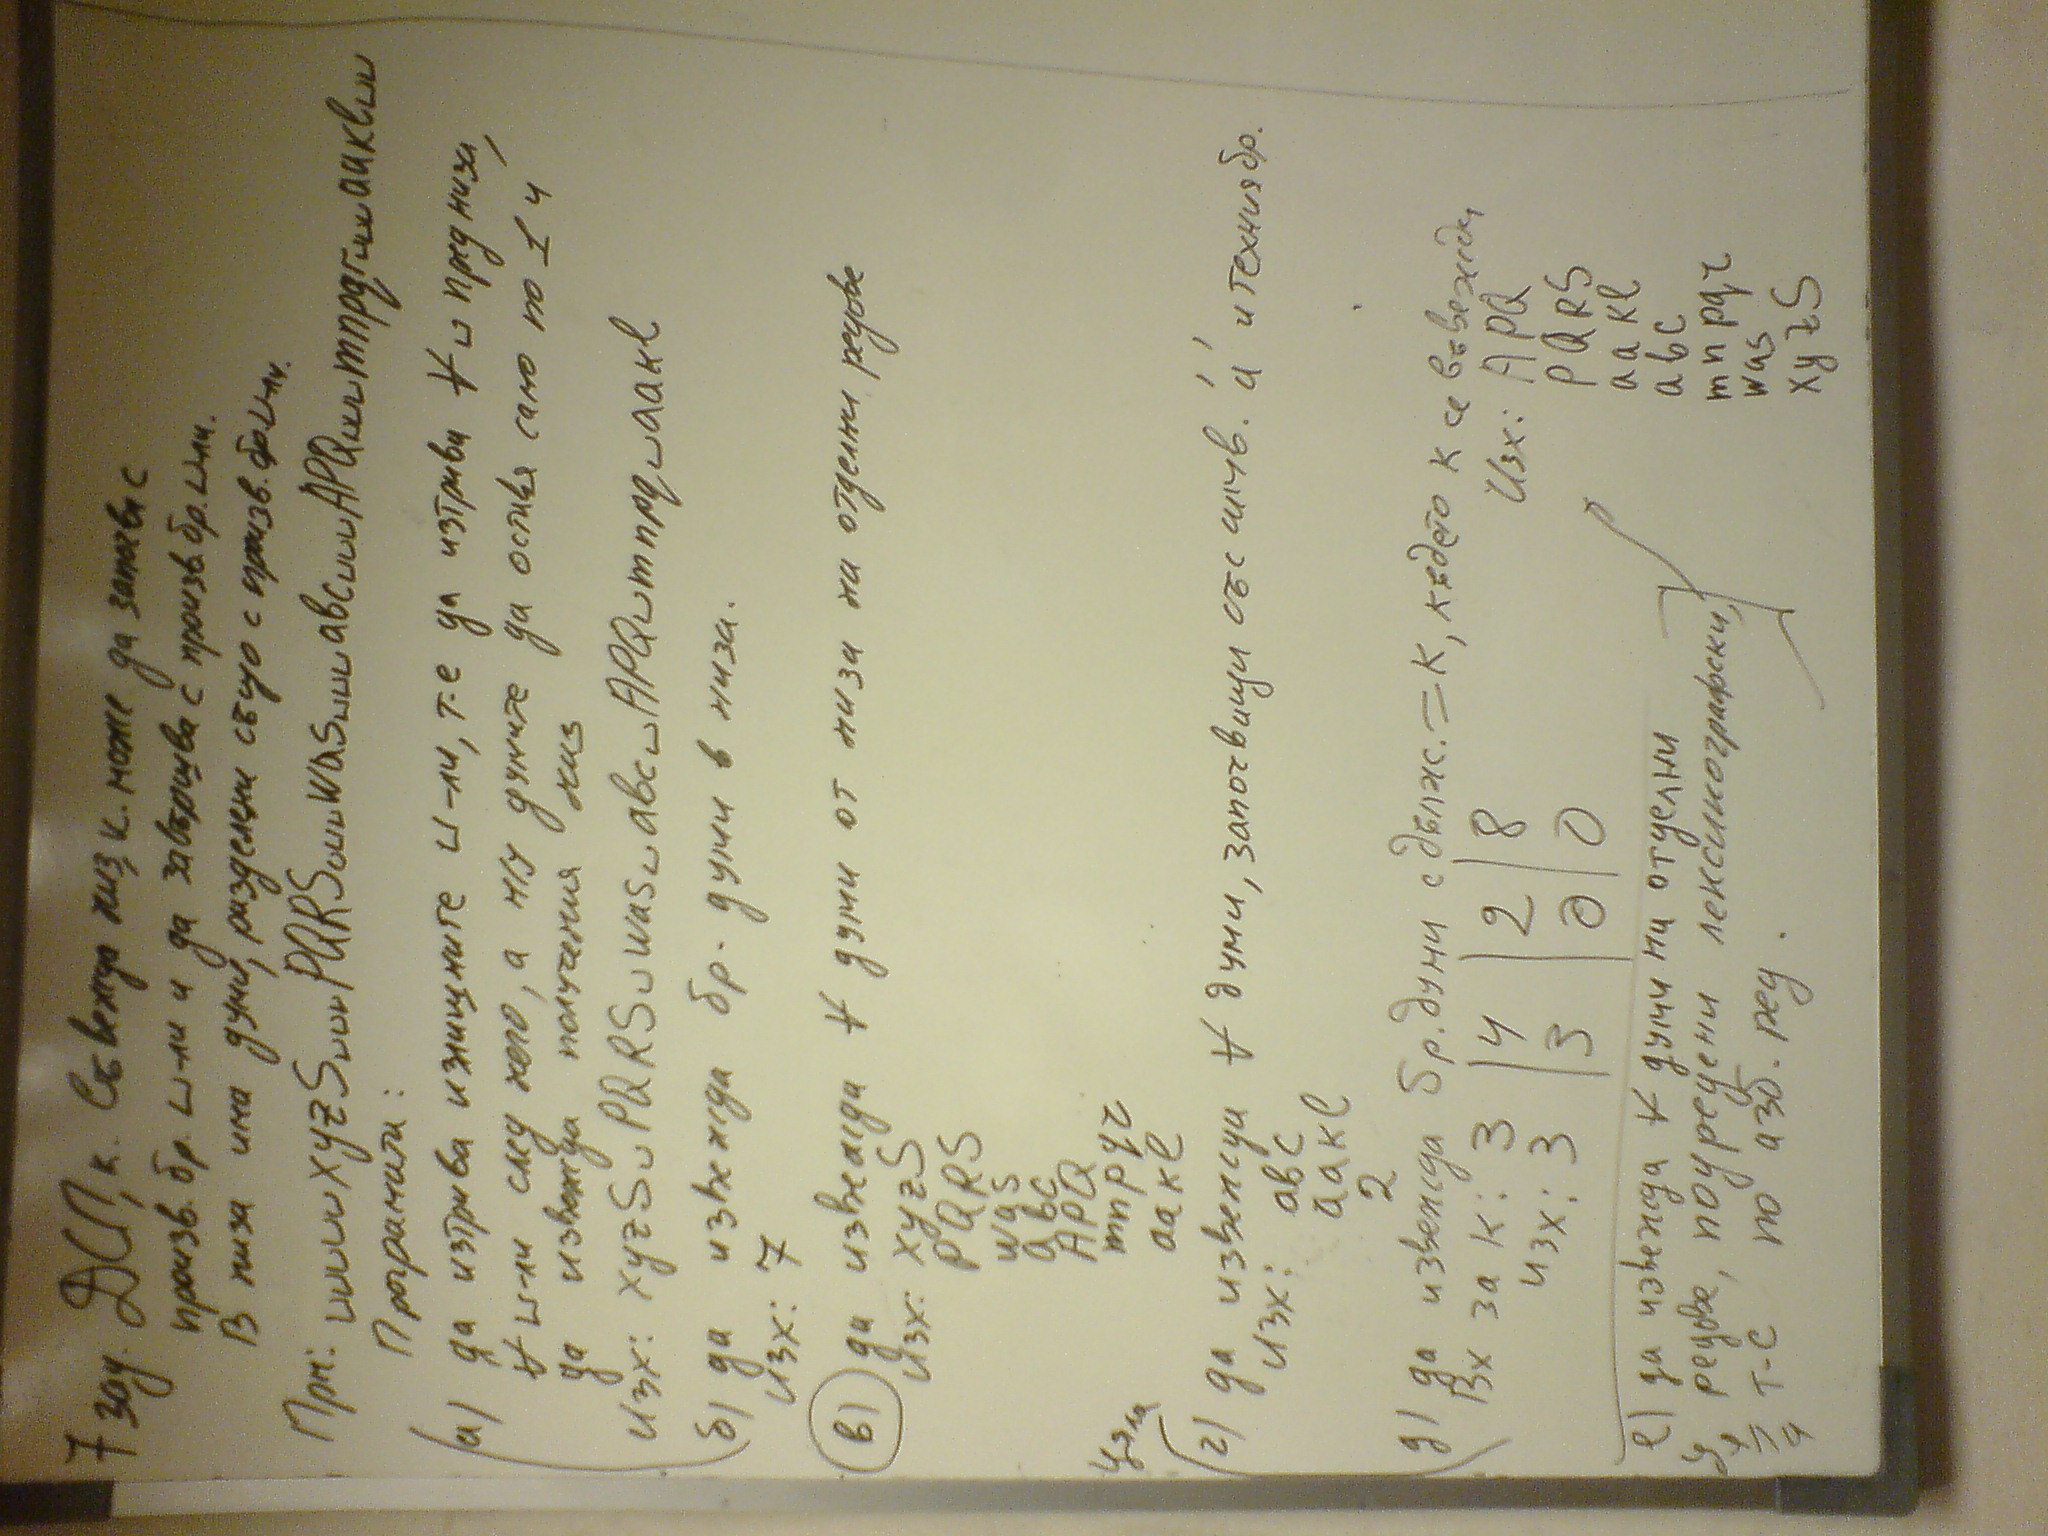 7 зад. ДСП, к. Съвежда низ, к. може да започва с
произв. бр. ⊔-ли и да завършва с произв. бр. ⊔-ли.
В низа има думи, разделени също с произв. бр. ⊔-ли.
Прм: ⊔⊔⊔⊔xyzS⊔⊔⊔PQRS⊔⊔⊔was⊔⊔⊔abc⊔⊔⊔APQ⊔⊔⊔mnpqr⊔⊔⊔aakl⊔⊔
Програмата:
а) да изтрива излишните ⊔-ли, т.е да изтрива ∀ ⊔ пред низа,
∀ ⊔-ли след него, а м/у думите да остава само по 1 и
да извежда получения низ
Изх: xyzS⊔PQRS⊔was⊔abc⊔APQ⊔mnpq⊔aakl
б) да извежда бр. думи в низа.
Изх: 7
в) да извежда ∀ думи от низа на отделни редове
Изх: xyzS
PQRS
was
abc
APQ
mnpqr
aakl
г) да извежда ∀ думи, започващи със симв. 'a' и техния бр.
Изх: abc
aakl
2
д) да извежда бр. думи с дълж. = К, където К се въвежда
Вх за К: 3 | 4 | 2 | 8
Изх: 3 | 3 | 0 | 0
е) да извежда ∀ думи на отделни
редове, подредени лексикографски,
т-с по азб. ред.
Изх: APQ
PQRS
aakl
abc
mnpqr
was
xyzS